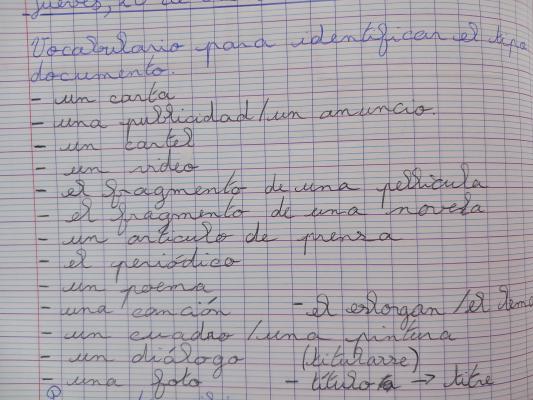 jueves, 20 de
Vocabulario para identificar el tipo
documento.
- un carta
- una publicidad/un anuncio.
- un cartel
- un video
- el fragmento de una pellicula
- el fragmento de una novela
- un articulo de prensa
- el periódico
- un poema
- una canción - el eslorgan/el lema
- un cuadro/una pintura
- un diálogo (titularre)
- una foto - título → titre